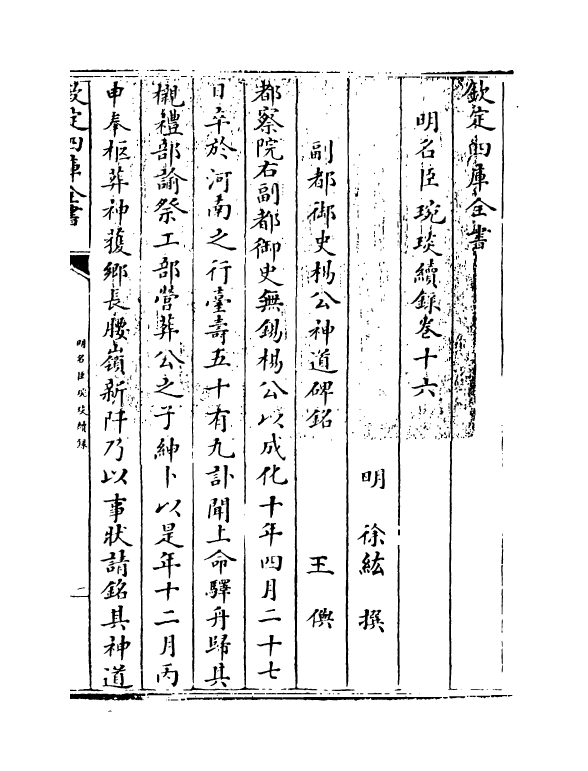 欽定四庫全書
明名臣琬琰續録卷十六
明　徐紘　撰
副都御史楊公神道碑銘　王㒜
都察院右副都御史無錫楊公以成化十年四月二十七
日卒於河南之行臺壽五十有九訃聞上命驛舟歸其
櫬禮部諭祭工部營葬公之子紳卜以是年十二月丙
申奉柩葬神護鄉長腰嶺新阡乃以事狀請銘其神道
欽定四庫全書
明名臣琬琰續録